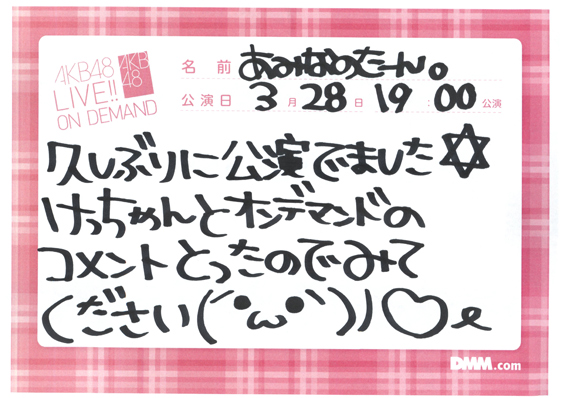 AKB48
LIVE!!
ON DEMAND
AKB
48
名前 あみなのたーん。
公演日 3月28日 19:00公演
久しぶりに公演でました✡
けっちゃんとオンデマンドの
コメントとったのでみて
ください(´・ω・`)ノ♡
DMM.com